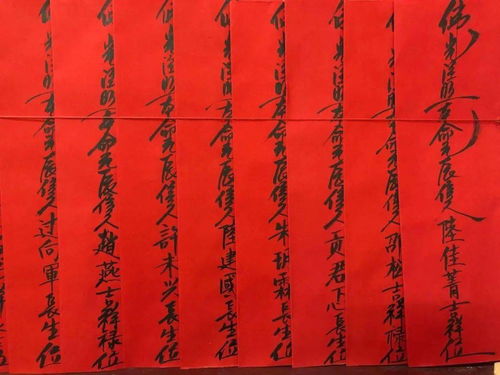 佛光注照本命元辰信人陸佳菁吉祥位
佛光注照本命元辰信人邵松吉祥祿位
佛光注照本命元辰信人君長生位
佛光注照本命元辰信人朱玥霖長生位
佛光注照本命元辰信人陸建國長生位
佛光注照本命元辰信人許未兴長生位
佛光注照本命元辰信人趙燕吉祥祿位
佛光注照本命元辰信人过向軍長生位